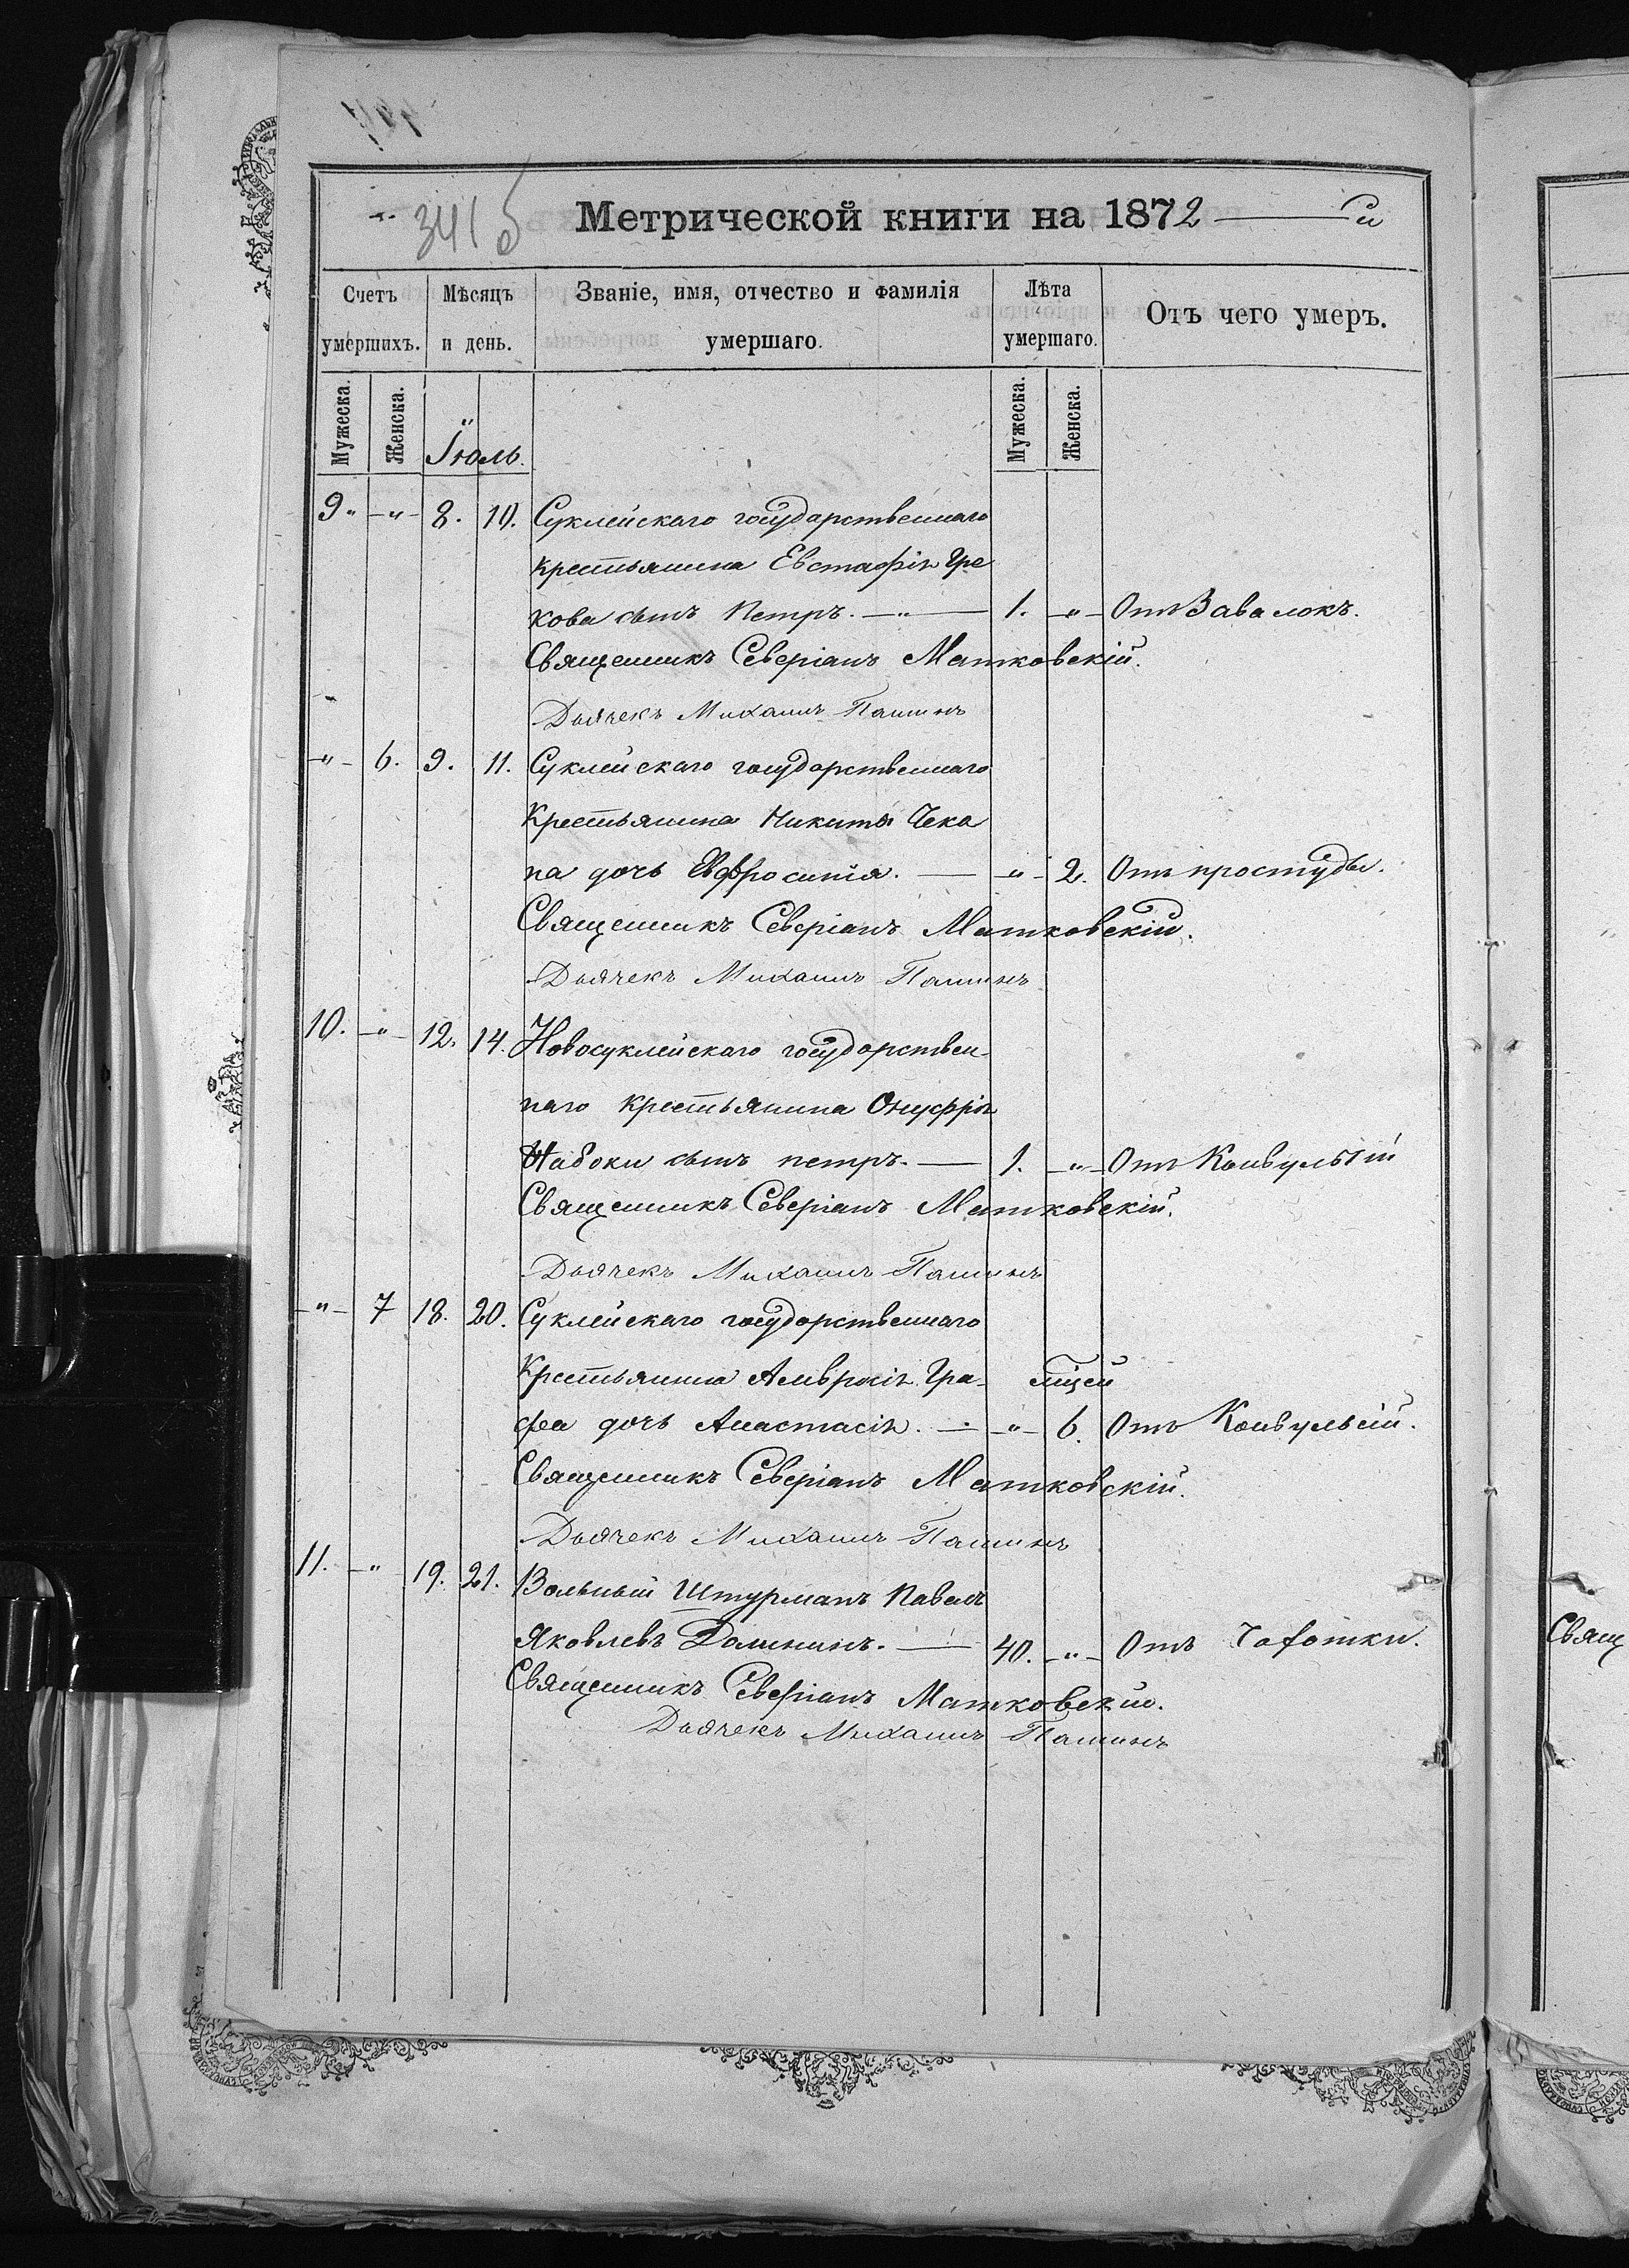 341 б
Метрической книги на 1872
Счетъ умершихъ.
Мѣсяцъ и день.
Званіе, имя, отчество и фамилія умершаго.
Лѣта умершаго.
Отъ чего умеръ.
Мужеска.
Женска.
Іюль.
Мужеска.
Женска.
9. " 8. 10. Суклейскаго государственнаго
крестьянина Евстафія Гре
кова сынъ Петръ. 1. " Отъ Завалокъ.
Священникъ Северіанъ Матковскій.
Дьячекъ Михаилъ
" 6. 9. 11. Суклейскаго государственнаго
Крестьянина Никиты Чека
на дочь Евфросинія. " 2. Отъ простуды.
Священникъ Северіанъ Матковскій.
Дьячекъ Михаилъ
10. " 12. 14. Новосуклейскаго государствен-
наго крестьянина Онуфрія
Набоки сынъ петръ. 1. " Отъ Конвульсій
Священникъ Северіанъ Матковскій.
Дьячекъ Михаилъ
" 7 18. 20. Суклейскаго государственнаго
Крестьянина Амвросія Гра-
фа дочь Анастасія. " 6. Отъ Конвульсій.
Священникъ Северіанъ Матковскій.
Дьячекъ Михаилъ
11. " 19. 21. Вольный Штурманъ Павелъ
Яковлевъ 40. " Отъ Чахотки.
Священникъ Северіанъ Матковскій.
Дьячекъ Михаилъ
Свящ